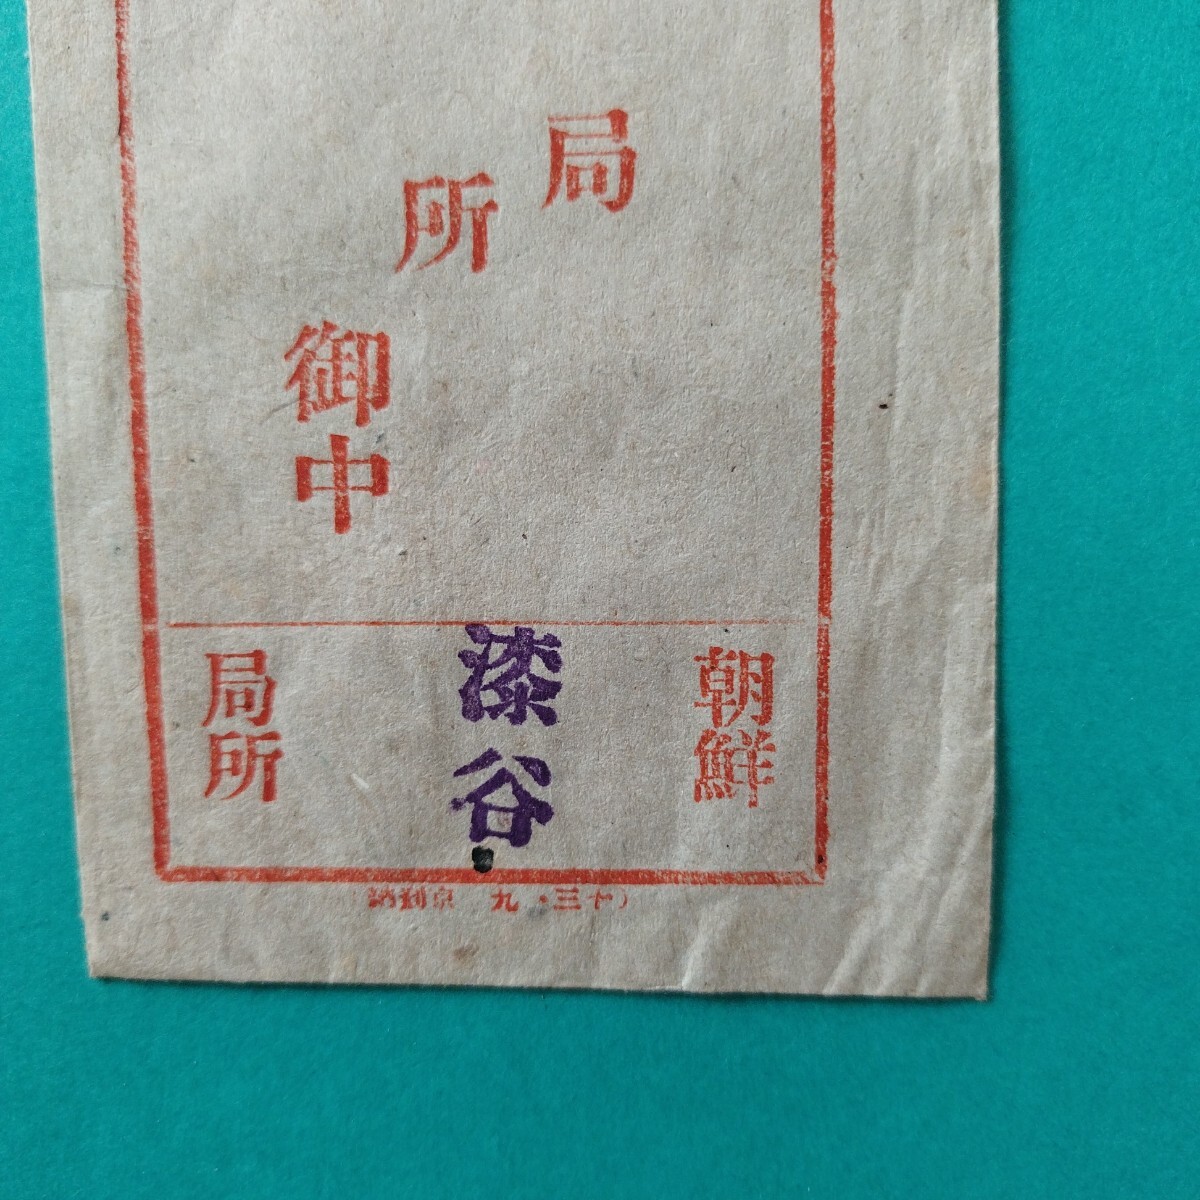 局
所
御中
朝鮮
漆谷
局所
(十三・九 京